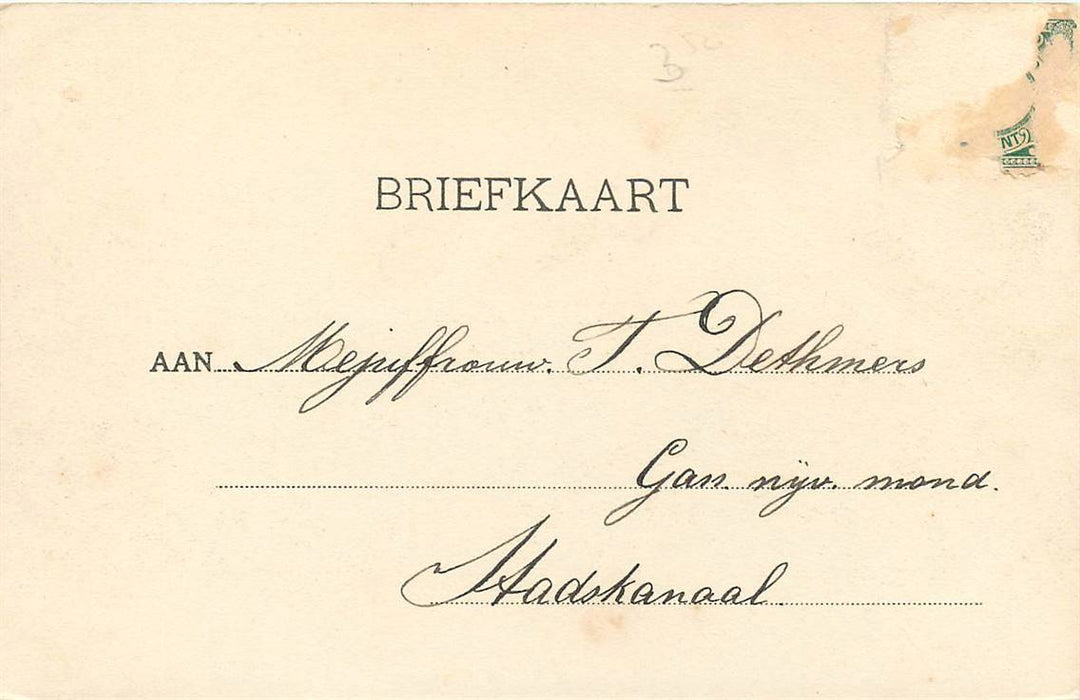 3 50
BRIEFKAART
AAN Mejuffrouw. T. Dethmers
Gass. nijv. mond.
Stadskanaal.
NT